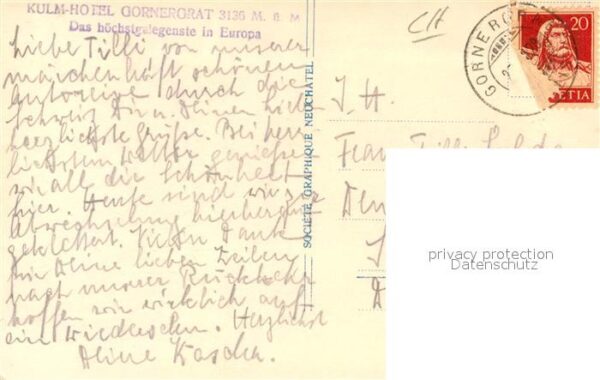 KULM-HOTEL GORNERGRAT 3136 M. ü. M
Das höchstgelegenste in Europa
Liebe Tilli von unserer
märchenhaft schönen
Autoreise durch die
Schweiz Dir u. Deinen
herzlichste Grüsse. Bei
Wetter geniessen
wir all die Schönheit
hier. Heute sind wir zur
Abwechslung hierher
geklettert. Vielen Dank
für Deine lieben Zeilen
nach unserer Rückkehr
hoffen wir wirklich auf
ein Wiedersehen. Herzlichst
Deine
SOCIÉTÉ GRAPHIQUE NEUCHÂTEL
CH
GORNERG
20
ETIA
Frau Tilli
privacy protection
Datenschutz